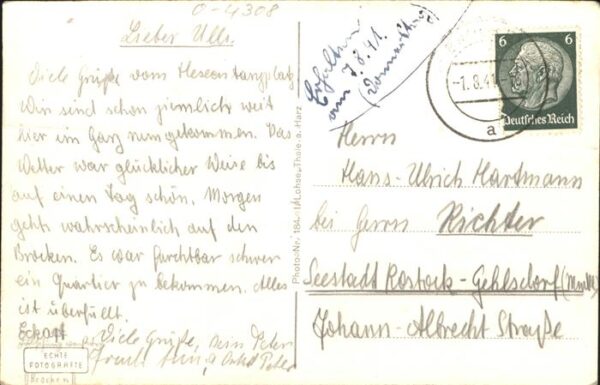 0-4308
Lieber Ulli.
Viele Grüße vom Hexentanzplatz
Wir sind schon ziemlich weit
hier im Harz rumgekommen. Das
Wetter war glücklicher Weise bis
auf einen Tag schön. Morgen
gehts wahrscheinlich auf den
Brocken. Es war furchtbar schwer
ein Quartier zu bekommen. Alles
ist überfüllt.
Eckart
Viele Grüße, dein Peter
ECHTE
FOTOGRAFIE
Brocken
Photo-Nr. 184 Lohse, Thale a. Harz
Erhalten
am 7.8.41.
(Donnerstag)
-1.8.41
a
6 6
Deutsches Reich
Herrn
Hans-Ulrich Hartmann
bei Herrn Richter
Seestadt Rostock-Gehlsdorf
Johann-Albrecht Straße